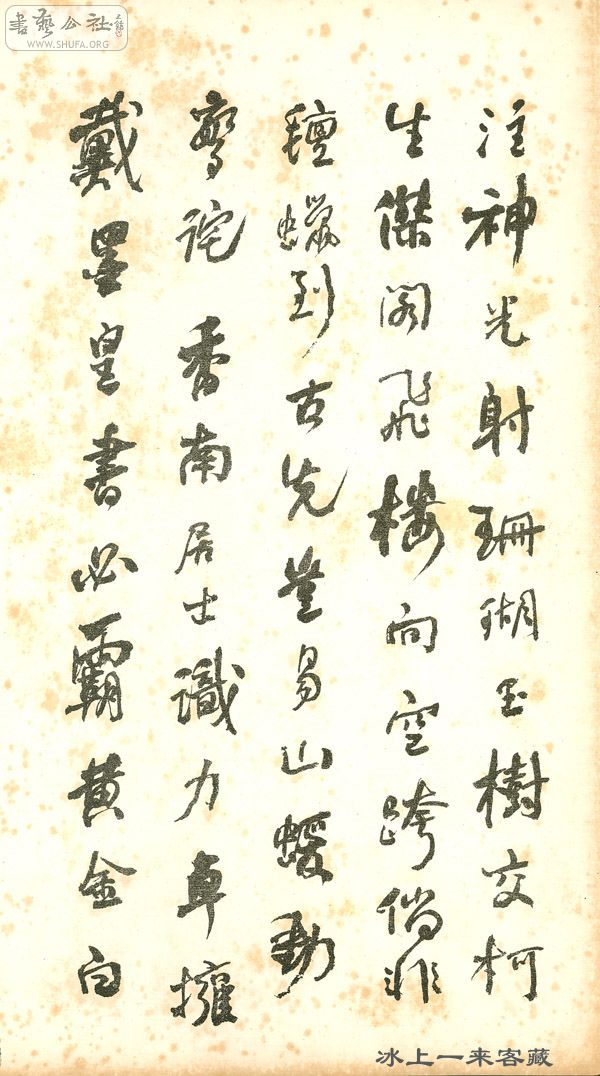 書藝公社
WWW.SHUFA.ORG
注神光射珊瑚玉樹交柯
生傑閣飛樓向空跨倘非
氈蠟到古先豈易山蝯動
驚詫香南居士識力卓擁
戴墨皇書必霸黃金白
冰上一来客藏